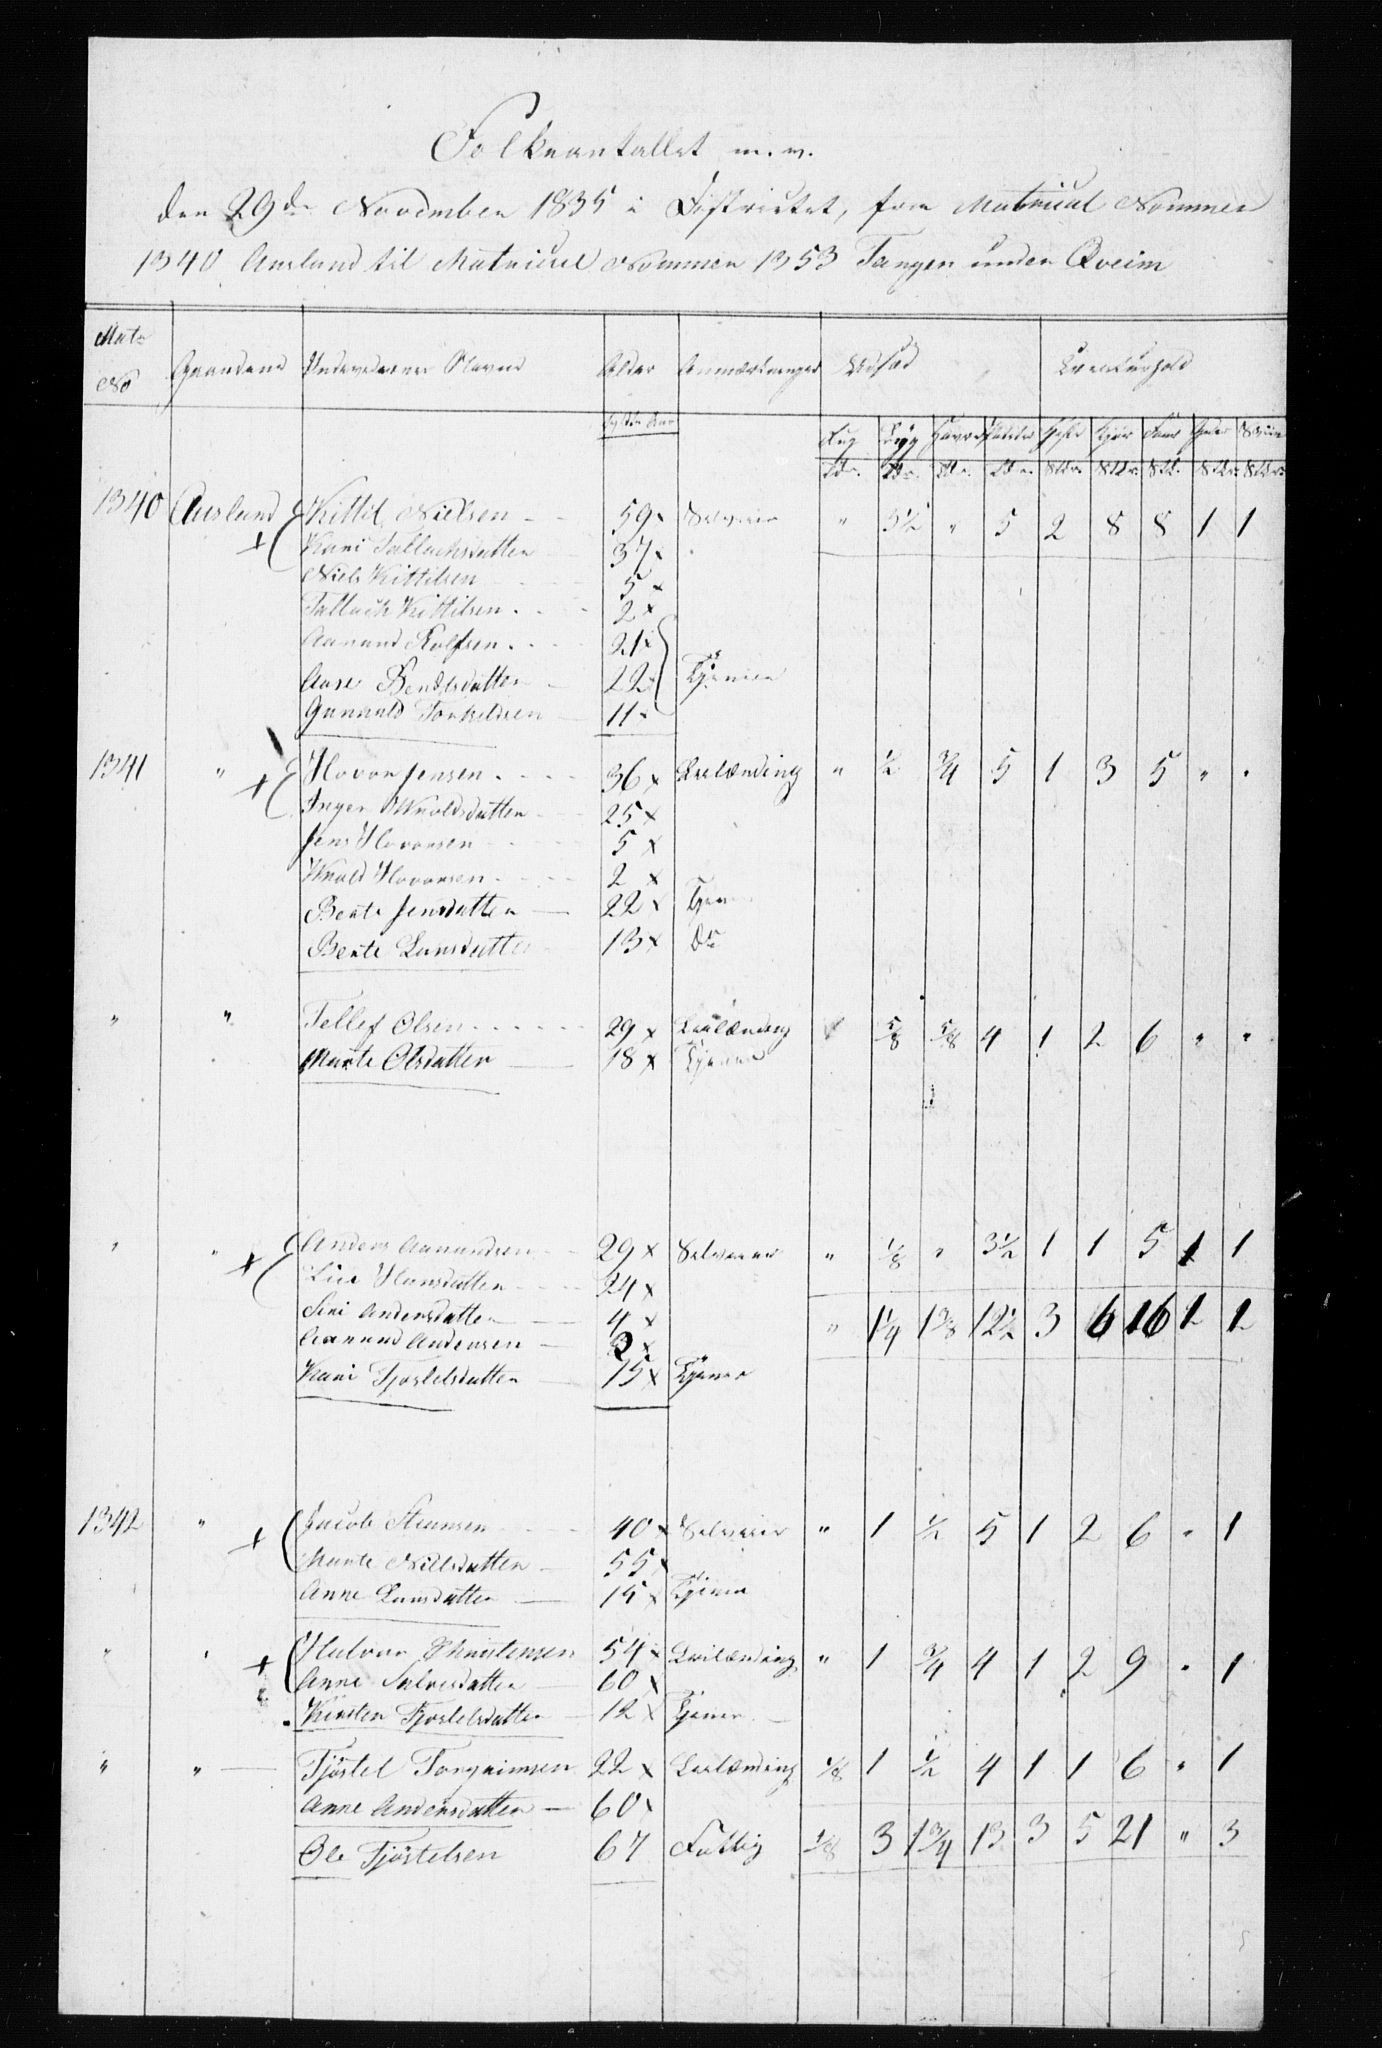 Folkeantallet m. v.
den 29de November 1835 i Districtet, fra Matricul Nommer
1340 Ausland til Matricul Nommer 1353 Tangen under Qveim
Matr No Gaardene Indvaanernes Navne Alder Anmærkninger Udsæd Creaturhold
fyldte Aar
Rug Bÿg Havre Heste Kjør Faar Sviin
1340 Ausland Kittil Nielsen 59 Selveier " 5½ " 5 2 8 8 1 1
Kari Tallachsdatter 37
Niels Kittilsen 5
Tallach Kittilsen 2
Aanund Rolfsen 21
Aase Bendtsdatter 22 Tjenere
Gunnuld Torkildsen 11
1341 " Hovor Jensen 36 Leilænding " ½ ¾ 5 1 3 5 " "
Inger Knoldsdatter 25
Jens Hovorsen 5
Knold Hovorsen 2
Berte Jensdatter 22
Berte Larsdatter 13 do
" " Tellef Olsen 29 Leilænding 5/8 5/8 4 1 2 6 " "
Marte Olsdatter 18 Tjener
" " Anders Aanundsen 29 Selveier " 1/8 " 3½ 1 1 5 1 1
Lise Hansdatter 24
Siri Andersdatter 4 " 1¼ 1 3/8 12½ 3 6 16 1 1
Aanund Andersen 2
Kari Tjostelsdatter 15 Tjener
1342 " Jacob 40 Selveier " 1 ½ 5 1 2 6 " 1
Marte Nilsdatter 55
Anne Larsdatter 15 Tjener
" " Halvor Christensen 54 Leilænding " 1 ¾ 4 1 2 9 " 1
Anne Salvesdatter 60
Kirsten Tjostelsdatter 12 Tjener
" " Tjöstel Torgrimsen 22 Leilænding 1/8 1 ½ 4 1 1 6 " 1
Anne Andersdatter 60
Ole Tjöstelsen 67 Fattig 1/8 3 1¾ 13 3 5 21 " 3